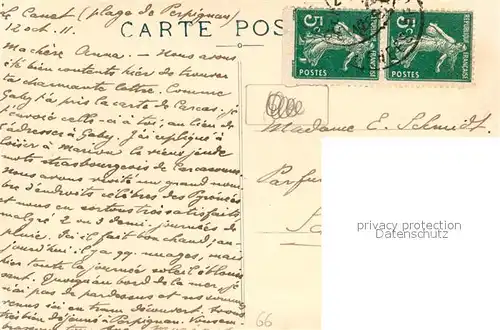 Le Canet (plage de Perpignan)
12 oct. 11.
CARTE POS
5c 5c
POSTES POSTES
RÉPUBLIQUE FRANÇAISE
Ma chère Anna – Nous avons
été bien contents hier de trouver
ta charmante lettre. Comme
Gaby t'a pris la carte de Carcas. je
t'envoie celle-ci à toi, au lieu de
l'adresser à Gaby. J'ai expliqué à
loisir à Marion le vieux
strasbourgeois de Carcassonne.
Nous avons visité un grand nom
bre d'endroits célèbres des Pyrénées
et nous en sortons très satisfaits
malgré 2 ou 3 demi-journées de
pluie. Ici il fait bon chaud; au-
jourd'hui il y a qq. nuages, mais
hier toute la journée soleil
Quoiqu'au bord de la mer je
n'ai pas de pardessus et nous sommes
venus ici en tram découvert. Nous
de jours à Perpignan.
Madame E. Schmidt.
Parfu
66
privacy protection
Datenschutz